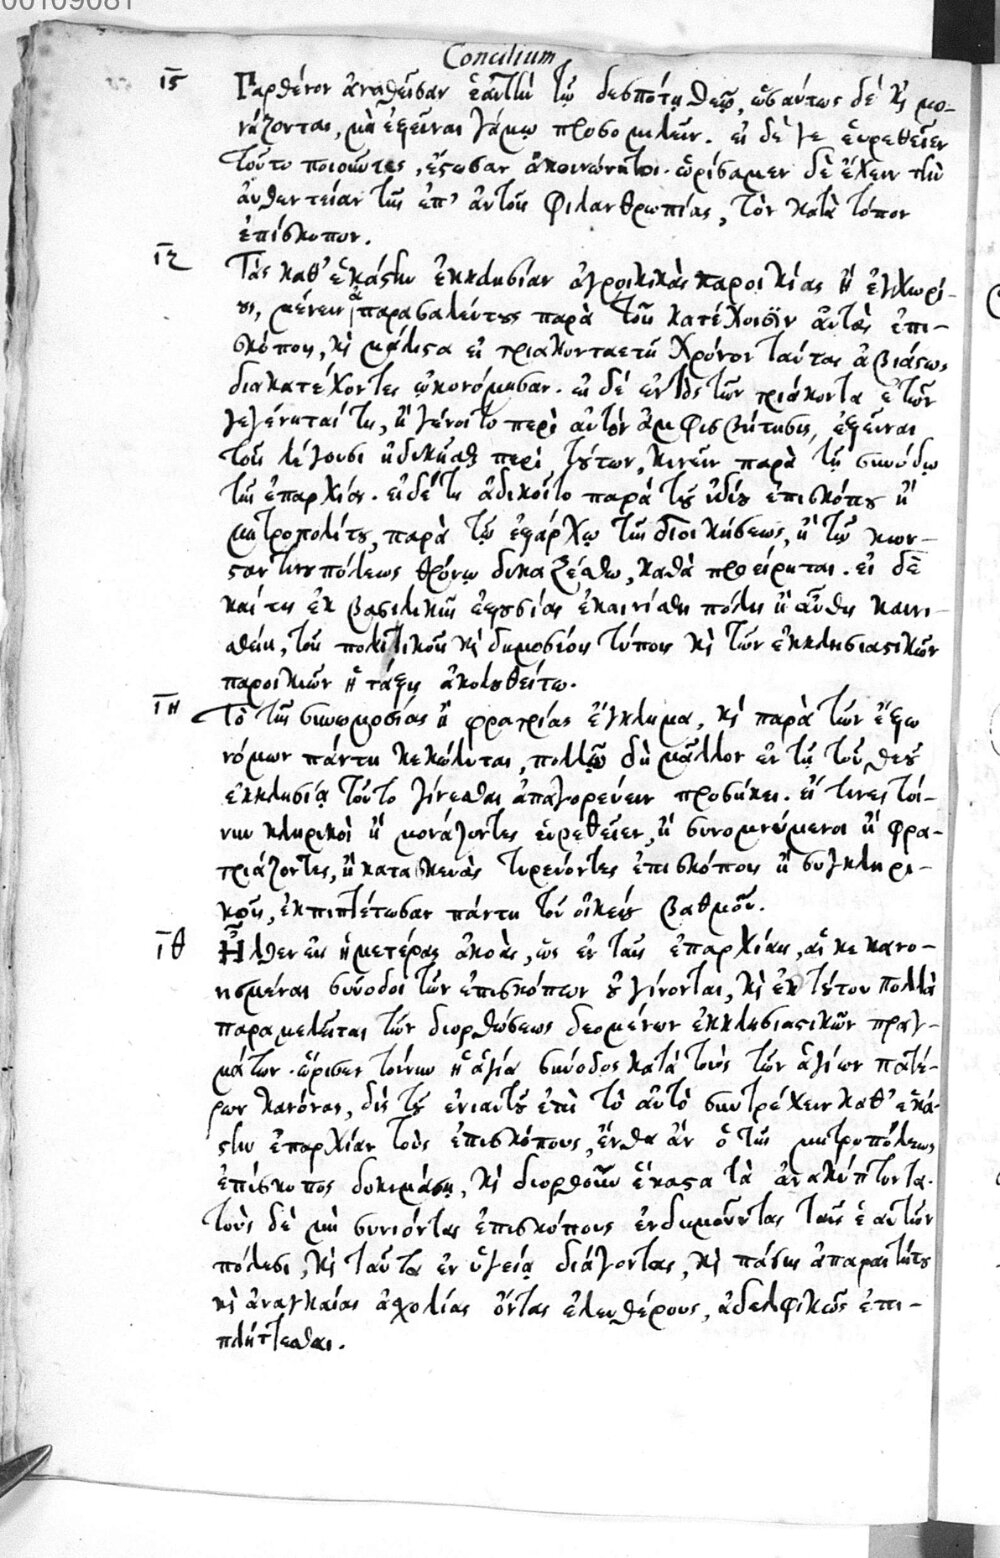 00109081
Concilium
ις Παρθένον ἀναθεῖσαν ἑαυτὴν τῷ δεσπότῃ θεῷ, ὡσαύτως δὲ κỳ μο-
νάζοντας, μὴ ἐξεῖναι γάμῳ προσομιλεῖν. εἰ δέ γε εὑρεθεῖεν
τοῦτο ποιοῦντες, ἔστωσαν ἀκοινώνητοι. ὡρίσαμεν δὲ ἔχειν τὴν
αὐθεντείαν τῆς ἐπ' αὐτοῖς φιλανθρωπίας, τὸν κατὰ τόπον
ἐπίσκοπον.
ιζ Τὰς καθ' ἑκάστην ἐκκλησίαν ἀγροικικὰς παροικίας ἢ ἐγχωρί-
ους, μένειν ἀπαρασαλεύτους παρὰ τοῖς κατέχουσιν αὐτὰς ἐπι-
σκόποις, κỳ μάλιστα εἰ τριακονταετῆ χρόνον ταύτας ἀβιάστως
διακατέχοντες ᾠκονόμησαν. εἰ δὲ ἐντὸς τῶν τριάκοντα ἐτῶν
γεγένηταί τις, ἢ γένοιτο περὶ αὐτῶν ἀμφισβήτησις, ἐξεῖναι
τοῖς λέγουσι ἠδικῆσθαι περὶ τούτων, κινεῖν παρὰ τῇ συνόδῳ
τῆς ἐπαρχίας. εἰ δέ τις ἀδικοῖτο παρὰ τοῦ ἰδίου ἐπισκόπου ἢ
μητροπολίτου, παρὰ τῷ ἐξάρχῳ τῆς διοικήσεως, ἢ τῷ κων-
σταντινουπόλεως θρόνῳ δικαζέσθω, καθὰ προείρηται. εἰ δὲ
καί τις ἐκ βασιλικῆς ἐξουσίας ἐκαινίσθη πόλις ἢ αὖθις καινι-
σθείη, τοῖς πολιτικοῖς κỳ δημοσίοις τύποις κỳ τῶν ἐκκλησιαστικῶν
παροικιῶν ἡ τάξις ἀκολουθείτω.
ιη Τὸ τῆς συνωμοσίας ἢ φρατρίας ἔγκλημα, κỳ παρὰ τῶν ἔξω
νόμων πάντη κεκώλυται, πολλῷ δὴ μᾶλλον ἐν τῇ τοῦ θεοῦ
ἐκκλησίᾳ τοῦτο γίνεσθαι ἀπαγορεύειν προσήκει. εἴ τινες τοί-
νυν κληρικοὶ ἢ μονάζοντες εὑρεθεῖεν, ἢ συνομνύμενοι ἢ φρα-
τριάζοντες, ἢ κατασκευὰς τυρεύοντες ἐπισκόποις ἢ συγκληρι-
κοῖς, ἐκπιπτέτωσαν πάντη τοῦ οἰκείου βαθμοῦ.
ιθ Ἦλθεν εἰς ἡμετέρας ἀκοὰς, ὡς ἐν ταῖς ἐπαρχίαις, αἱ κεκανο-
νισμέναι σύνοδοι τῶν ἐπισκόπων οὐ γίνονται, κỳ ἐκ τούτου πολλὰ
παραμελεῖται τῶν διορθώσεως δεομένων ἐκκλησιαστικῶν πραγ-
μάτων. ὥρισεν τοίνυν ἡ ἁγία σύνοδος κατὰ τοὺς τῶν ἁγίων πατέ-
ρων κανόνας, δὶς τοῦ ἐνιαυτοῦ ἐπὶ τὸ αὐτὸ συντρέχειν καθ' ἑκά-
στην ἐπαρχίαν τοὺς ἐπισκόπους, ἔνθα ἂν ὁ τῆς μητροπόλεως
ἐπίσκοπος δοκιμάσῃ, κỳ διορθοῦν ἕκαστα τὰ ἀνακύπτοντα.
τοὺς δὲ μὴ συνιόντας ἐπισκόπους ἐνδημοῦντας ταῖς ἑαυτῶν
πόλεσι, κỳ ταῦτα ἐν ὑγείᾳ διάγοντας, κỳ πάσης ἀπαραιτήτου
κỳ ἀναγκαίας ἀσχολίας ὄντας ἐλευθέρους, ἀδελφικῶς ἐπι-
πλήττεσθαι.